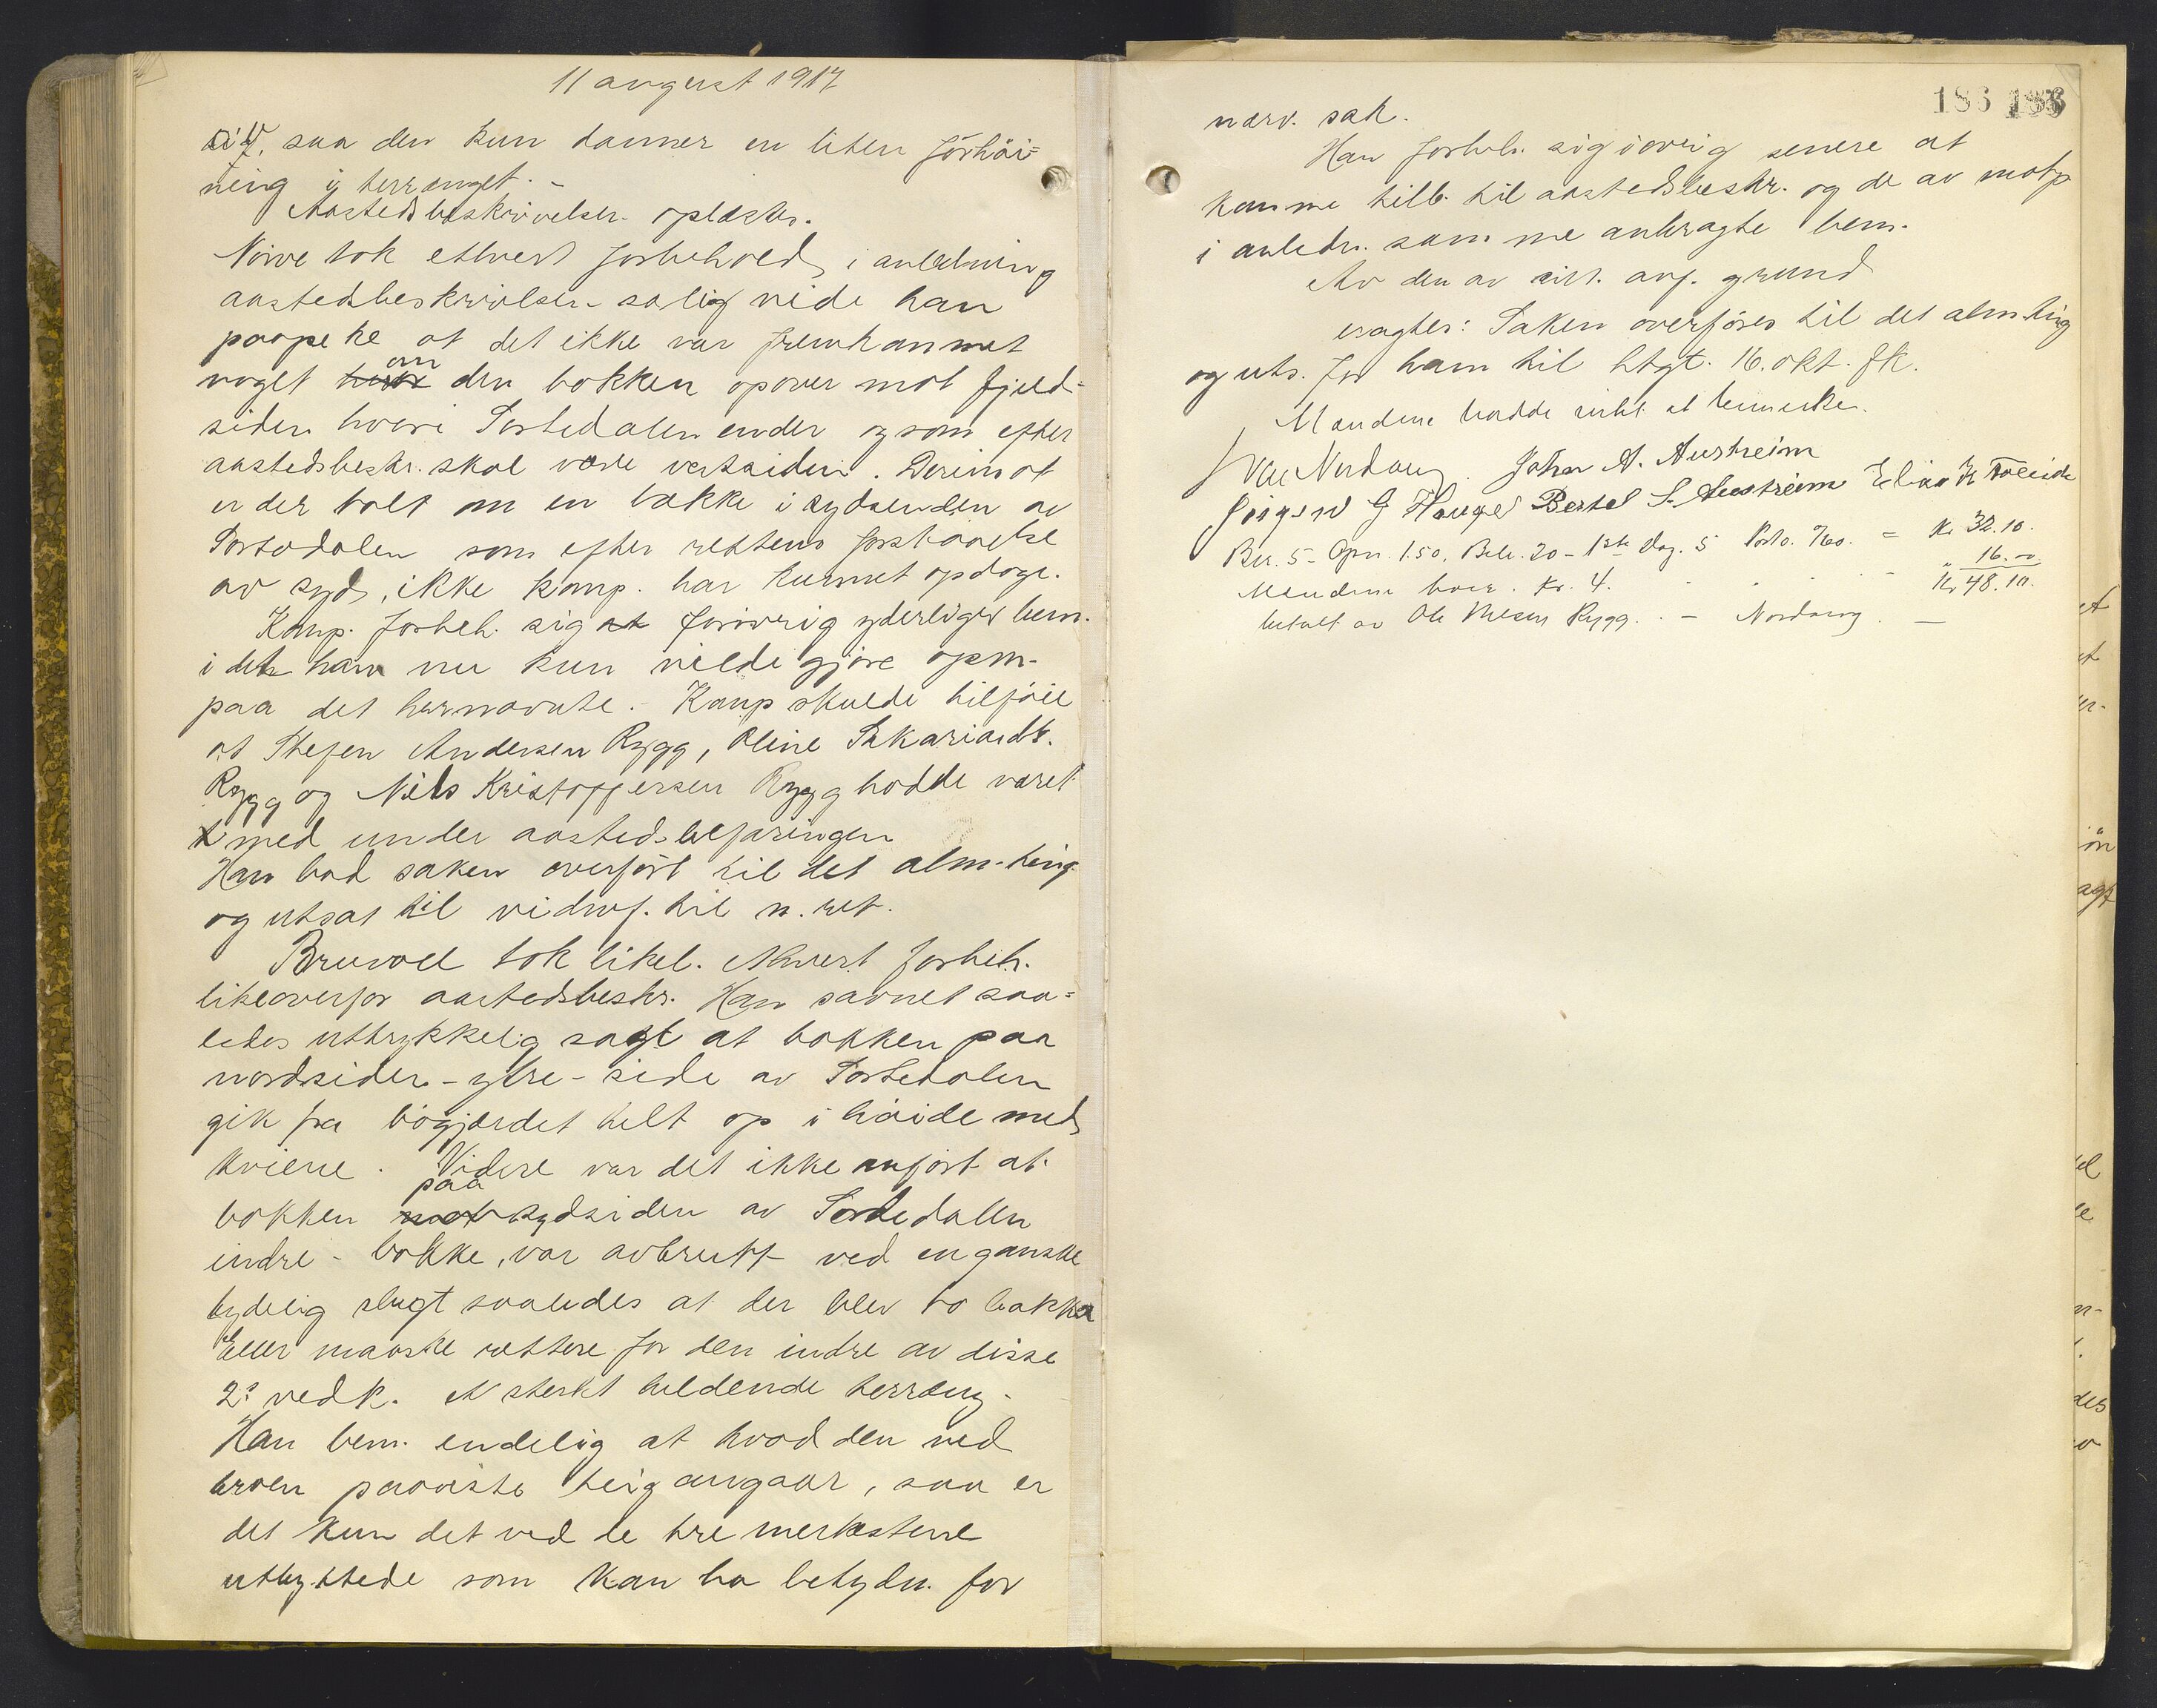 11 august 1917
sig, saa den kun danner en liten forhöi=
ning i terrænget. -
Aastedsbeskrivelsen oplæstes.
Nörve tok ethvert forbehold i anledning
aastedsbeskrivelsen – salig vilde han
paapeke at det ikke var fremkommet
noget om den bakken opover mot fjeld-
siden hvori Tostedalen ender og som efter
aastedsbeskr. skal være vestsiden. Derimot
er der talt om en bakke i sydenden av
Tostedalen som efter rettens forstaaelse
av syd, ikke komp. har kunnet opdage.
Komp. forbeh. sig forövrig yderligere bem.
i det han nu kun vilde gjöre opm-
paa det hernævnte. - Komp skulde tilföie
at Steffen Andersen Rygg, Oline Sakariasdtr.
Rygg og Nils Kristoffersen Rygg hadde været
med under aastedsbefaringen
Han bad saken overfört til det alm. ting
og utsat til vidnef. til n. ret.
Bruvoll tok likel. ethvert forbeh.
likeoverfor aastedsbeskr. Han savnet saa=
ledes uttrykkelig sagt at bakken paa
nordsiden – ytre – side av Tostedalen
gik fra bögjærdet helt op i höide med
kviene. Videre var det ikke anfört at
bakken paa sydsiden av Tostedalen
indre – bakke, var avbrutt ved en ganske
tydelig slugt saaledes at der blev to bakker
Eller maaske rettere for den indre av disse
2? vedk. et sterkt heldende terræng.
Han bem. endelig at hvad den ved
broen paaviste teig angaar, saa er
det kun det ved de tre merkestene
utbyttede som kan ha betydn. for
186 186
nærv. sak.
Han forbeh. sig iövrig senere at
komme tilb. til aastedsbeskr. og de av motp
i anledn. samme anbragte bem.
Av den av cit. anf. grund
eragtes: Saken overföres til det alm. ting
og uts. for ham til htgt. 16. okt. fk.
Mændene hadde intet at bemerke.
Ivar Nordang John A. Austreim
Jörgen G Hauge Bertel S. Austreim Elias
Ber. 5 - Opn. 1.50. Bef. 20 - 1ste dag. 5 Porto. 0.60. = Kr 32.10.
Mændene hver. Kr. 4. " 16. -
Kr 48.10.
betalt av Ole Nilsen Rygg. - Nordang. -